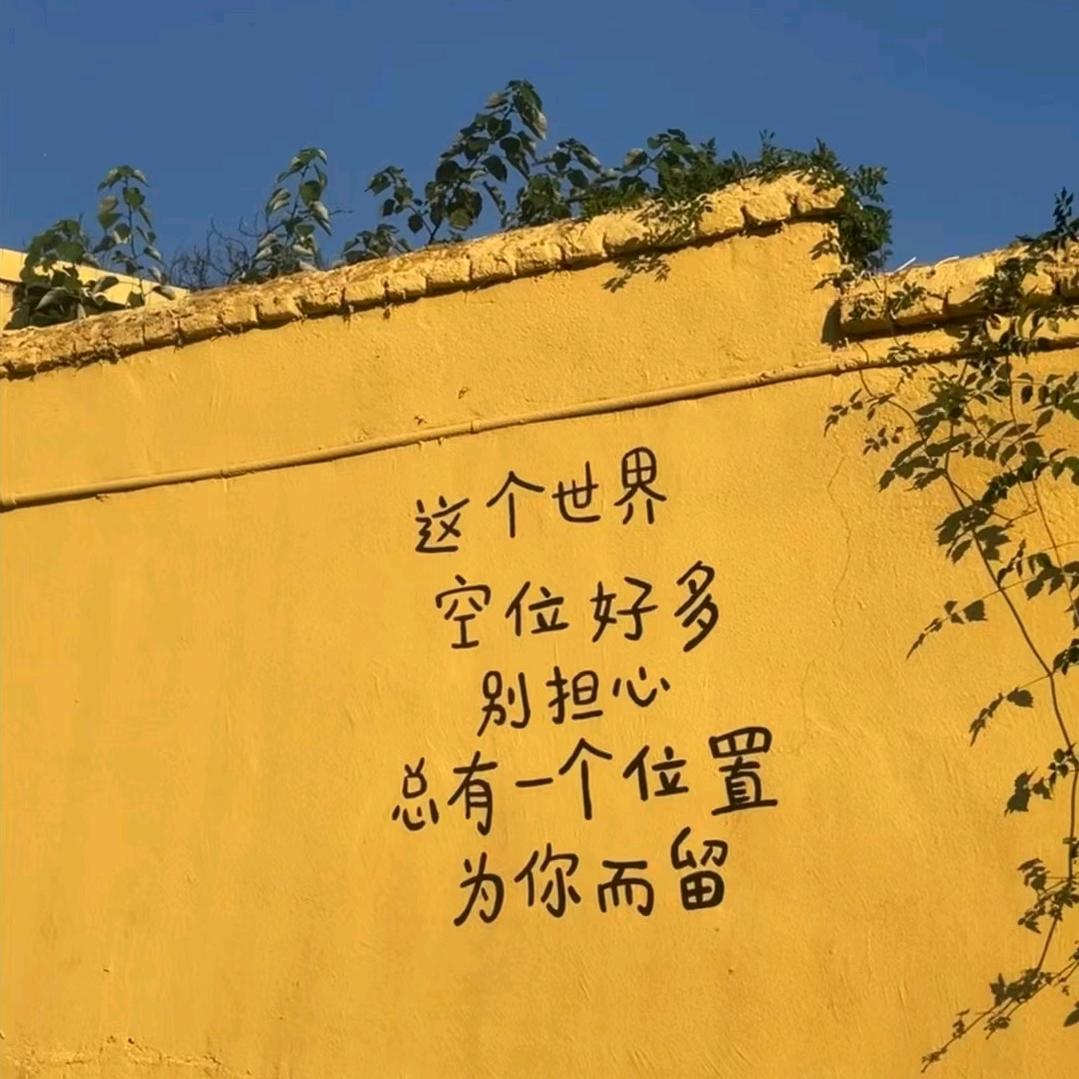 这个世界
空位好多
别担心
总有一个位置
为你而留